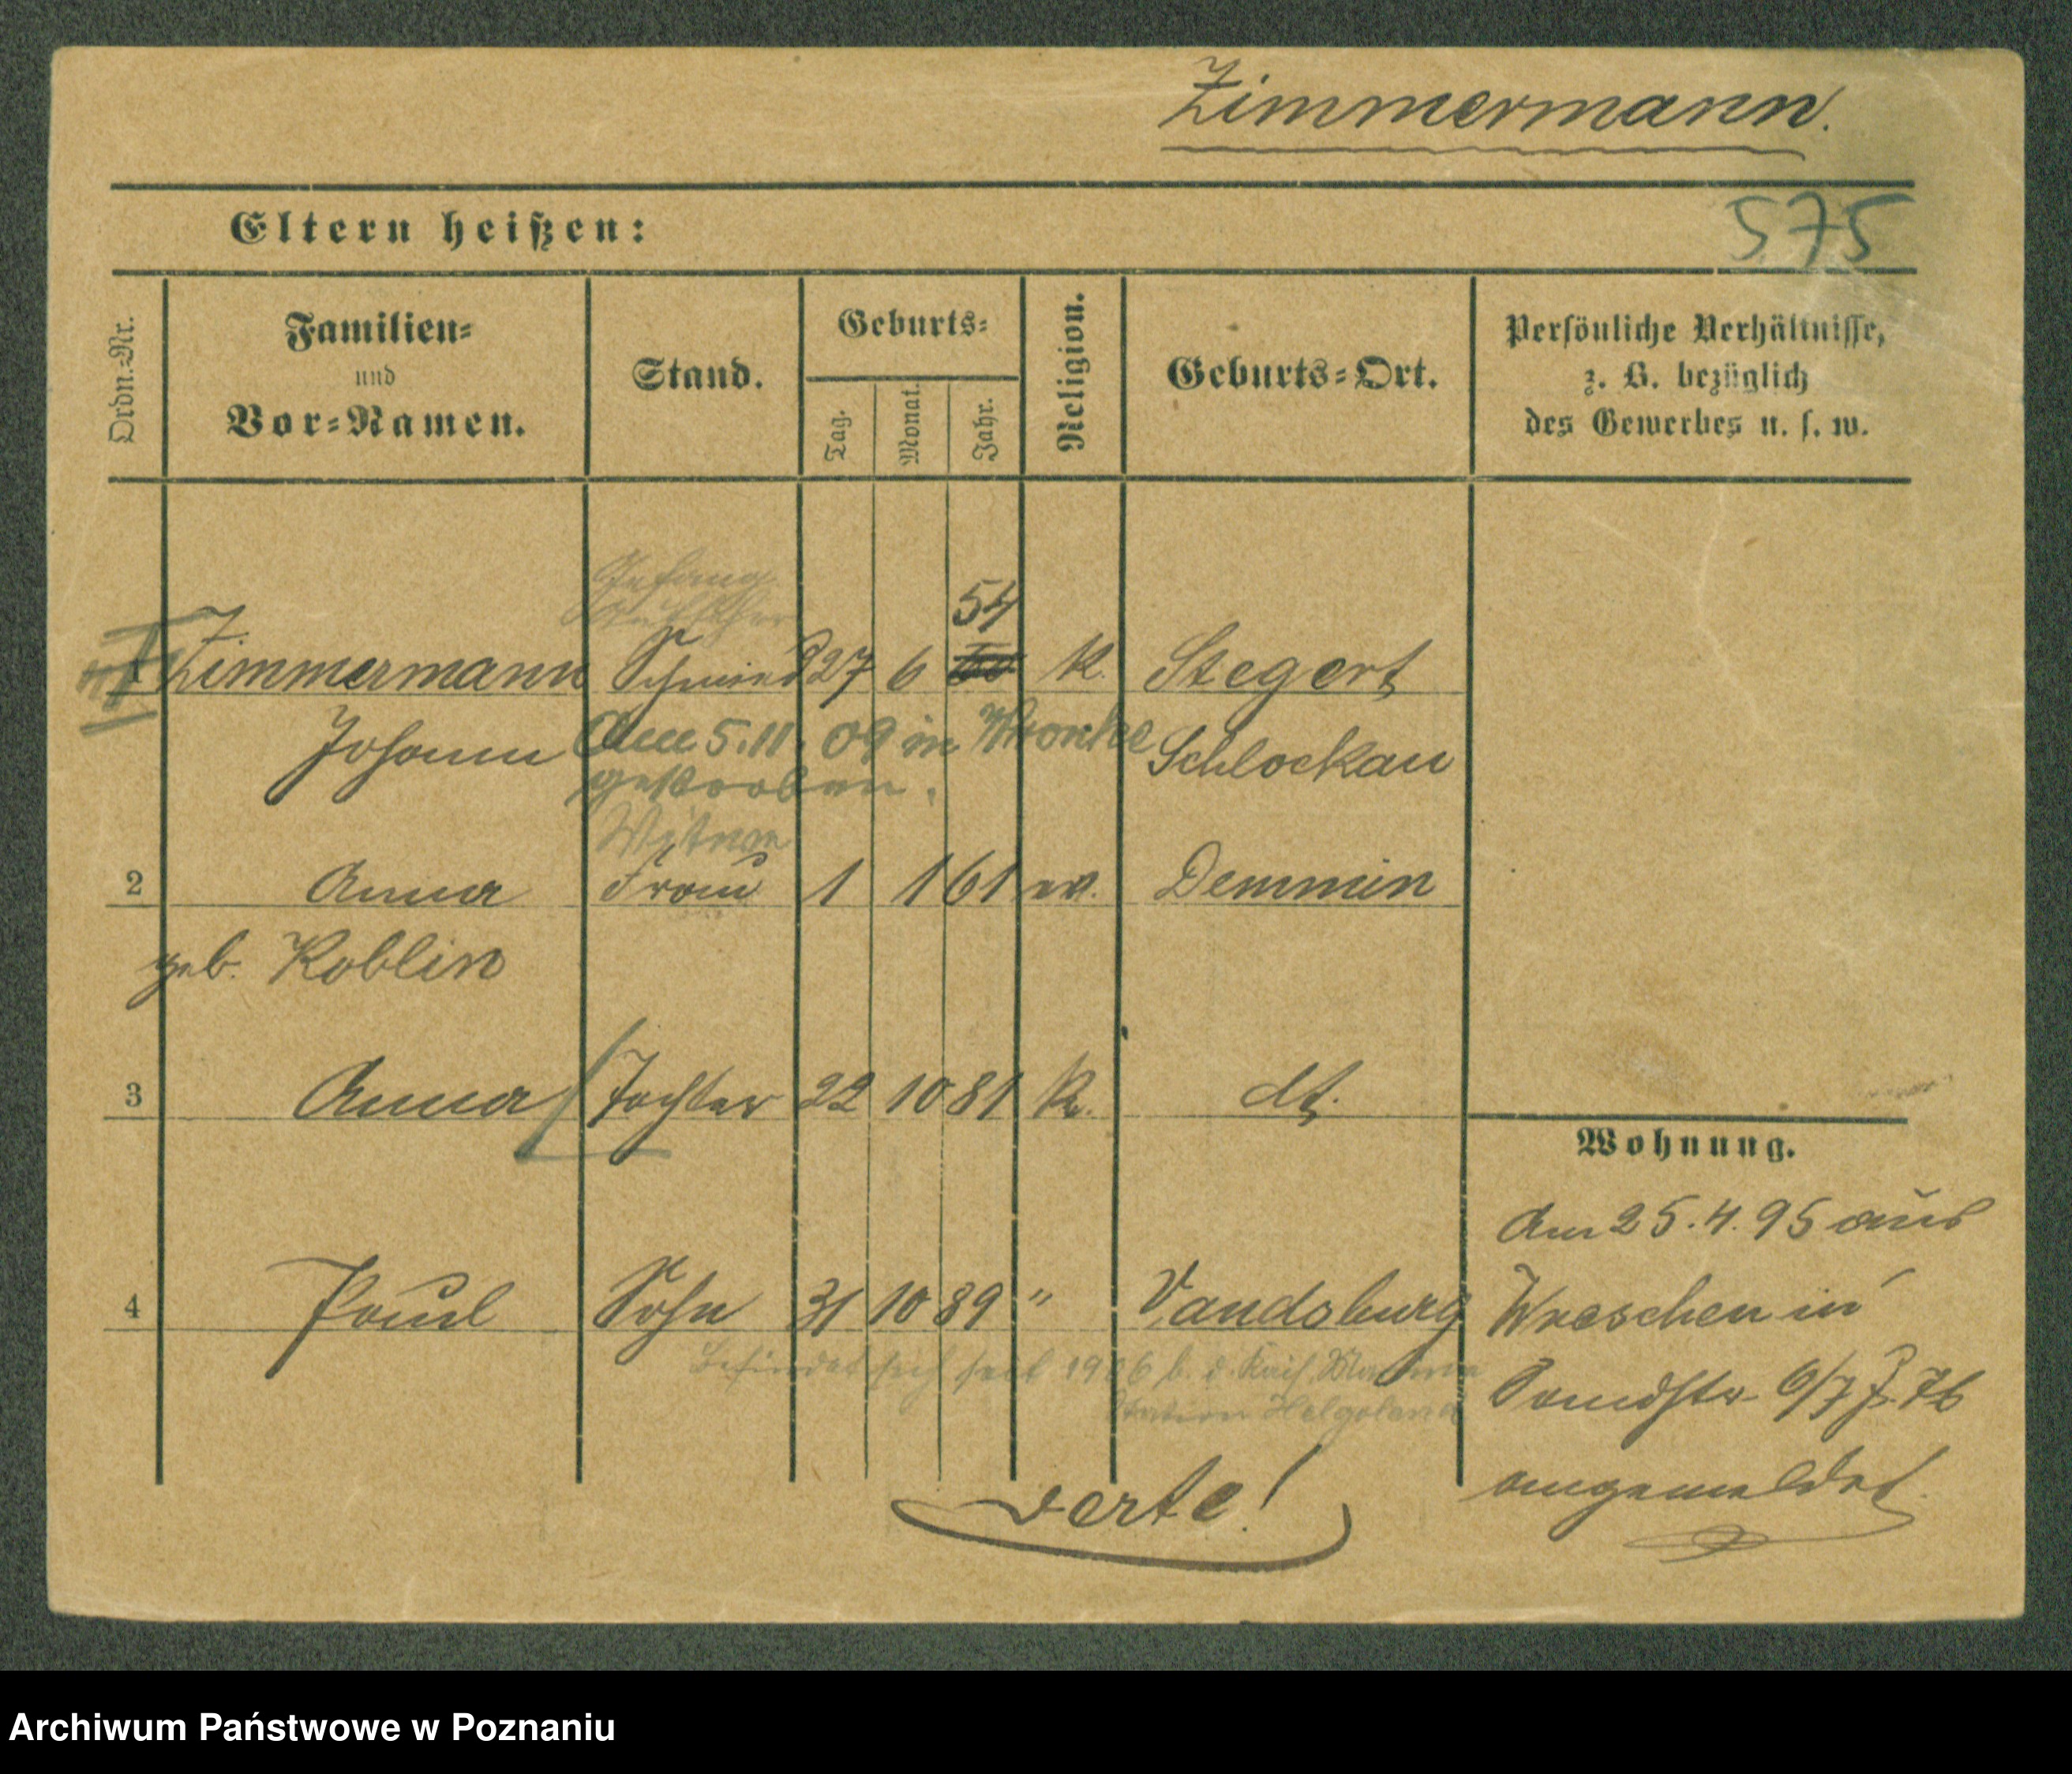 Zimmermann.
575
Eltern heißen:
Ordn.-Nr.
Familien-
und
Vor-Namen.
Stand.
Geburts-
Tag.
Monat.
Jahr.
Religion.
Geburts-Ort.
Persönliche Verhältnisse,
z. B. bezüglich
des Gewerbes u. s. w.
Gefang
54
Zimmermann Schmied 27 6 k. Stegert
Johann Am 5.11. 09 in Wronke Schlockau
gestorben.
Witwe
2 Anna Frau 1 1 61 ev. Demmin
geb. Koblin
3 Anna Tochter 22 10 81 k. dt.
4 Paul Sohn 31 10 89 " Vandsburg
Befindet sich seit 1906 b. d. Kais. Marine
Station Helgoland
verte!
Wohnung.
Am 25.4.95 aus
Wreschen in
Sandstr. 6/7 J. 76
angemeldet.
Archiwum Państwowe w Poznaniu